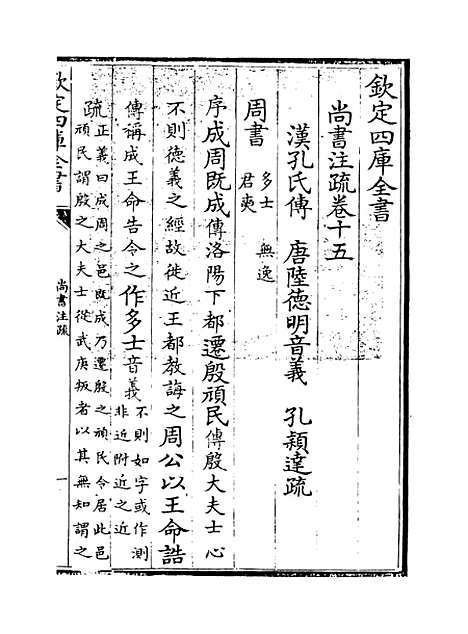 欽定四庫全書
尚書注疏卷十五
漢孔氏傳　唐陸德明音義　孔穎達疏
周書　多士　無逸
君奭
序成周既成傳洛陽下都遷殷頑民傳殷大夫士心
不則德義之經故徙近王都教誨之周公以王命誥
傳稱成王命告令之作多士音義不則如字或作測
非近附近之近
疏正義曰成周之邑既成乃遷殷之頑民令居此邑
頑民謂殷之大夫士從武庚叛者以其無知謂之
欽定四庫全書
尚書注疏
一